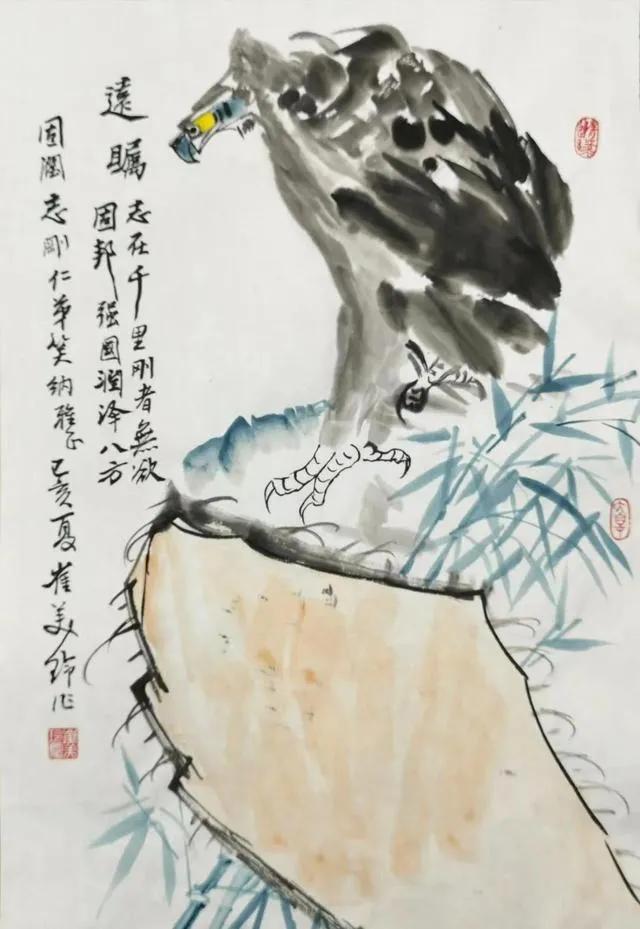 遠瞩
志在千里刚者無欲
固邦强国润泽八方
固润志刚仁弟笑纳雅正己亥夏崔美玲作